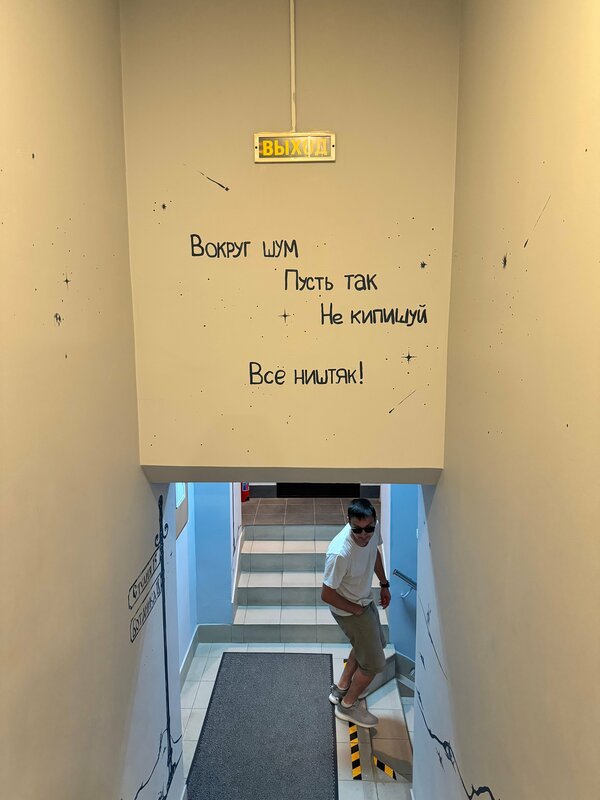 ВЫХОД
Вокруг шум
Пусть так
Не кипишуй
Всё ништяк!